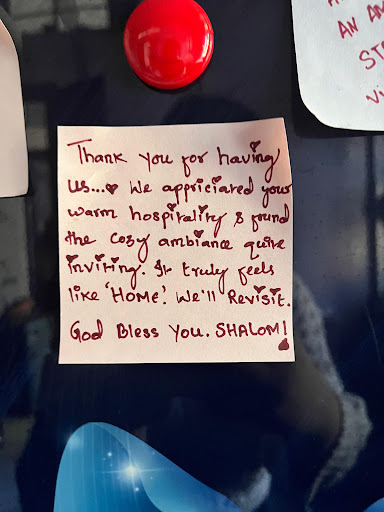 Thank you for having
us...♥ We appriciated your
warm hospitality & found
the cosy ambiance quite
inviting. It truly feels
like 'Home'. We'll Revisit.
God Bless You. SHALOM!
AN
ST